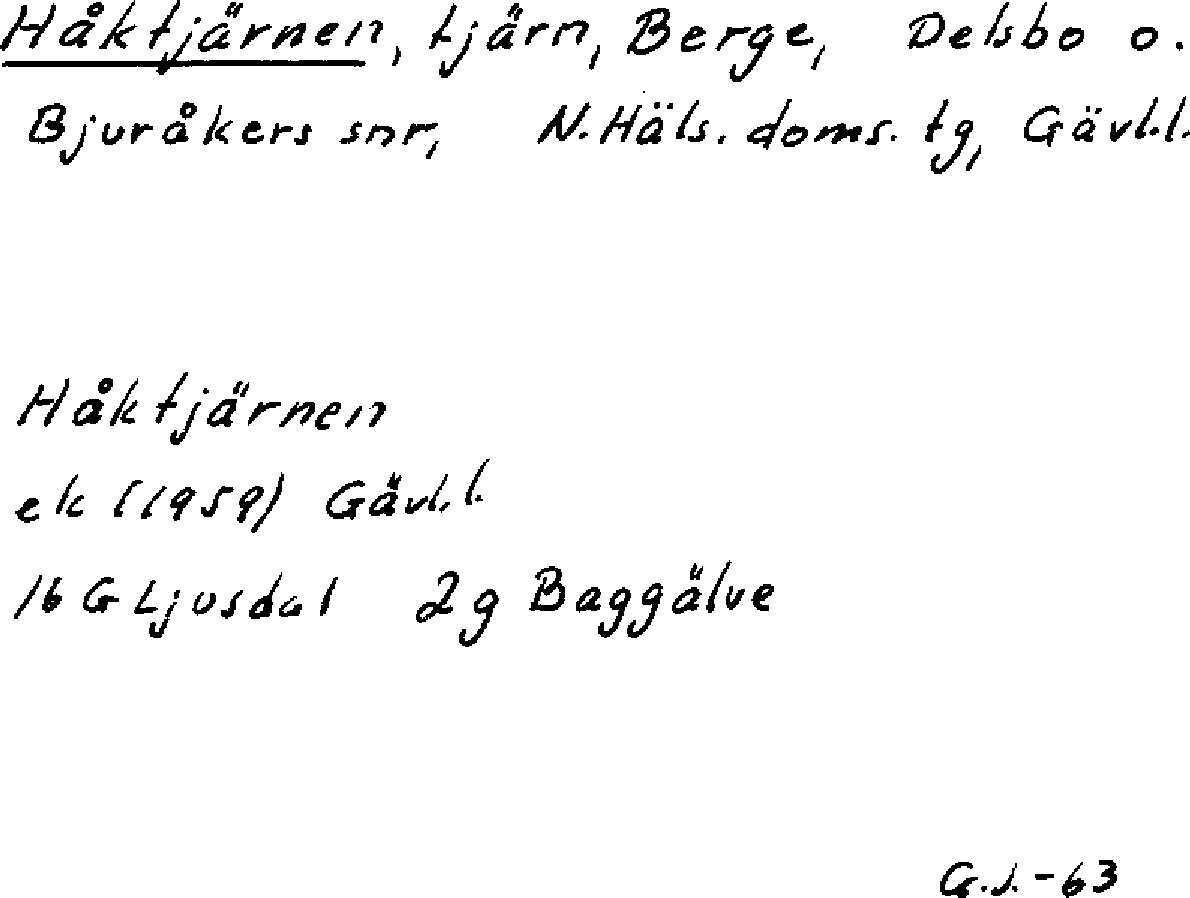 Håktjärnen, tjärn, Berge, Delsbo o.
Bjuråkers snr, N. Häls. doms. tg, Gävl.l.
Håktjärnen
ek (1959) Gävl.l.
16 G Ljusdal 2g Baggälve
G.J.-63